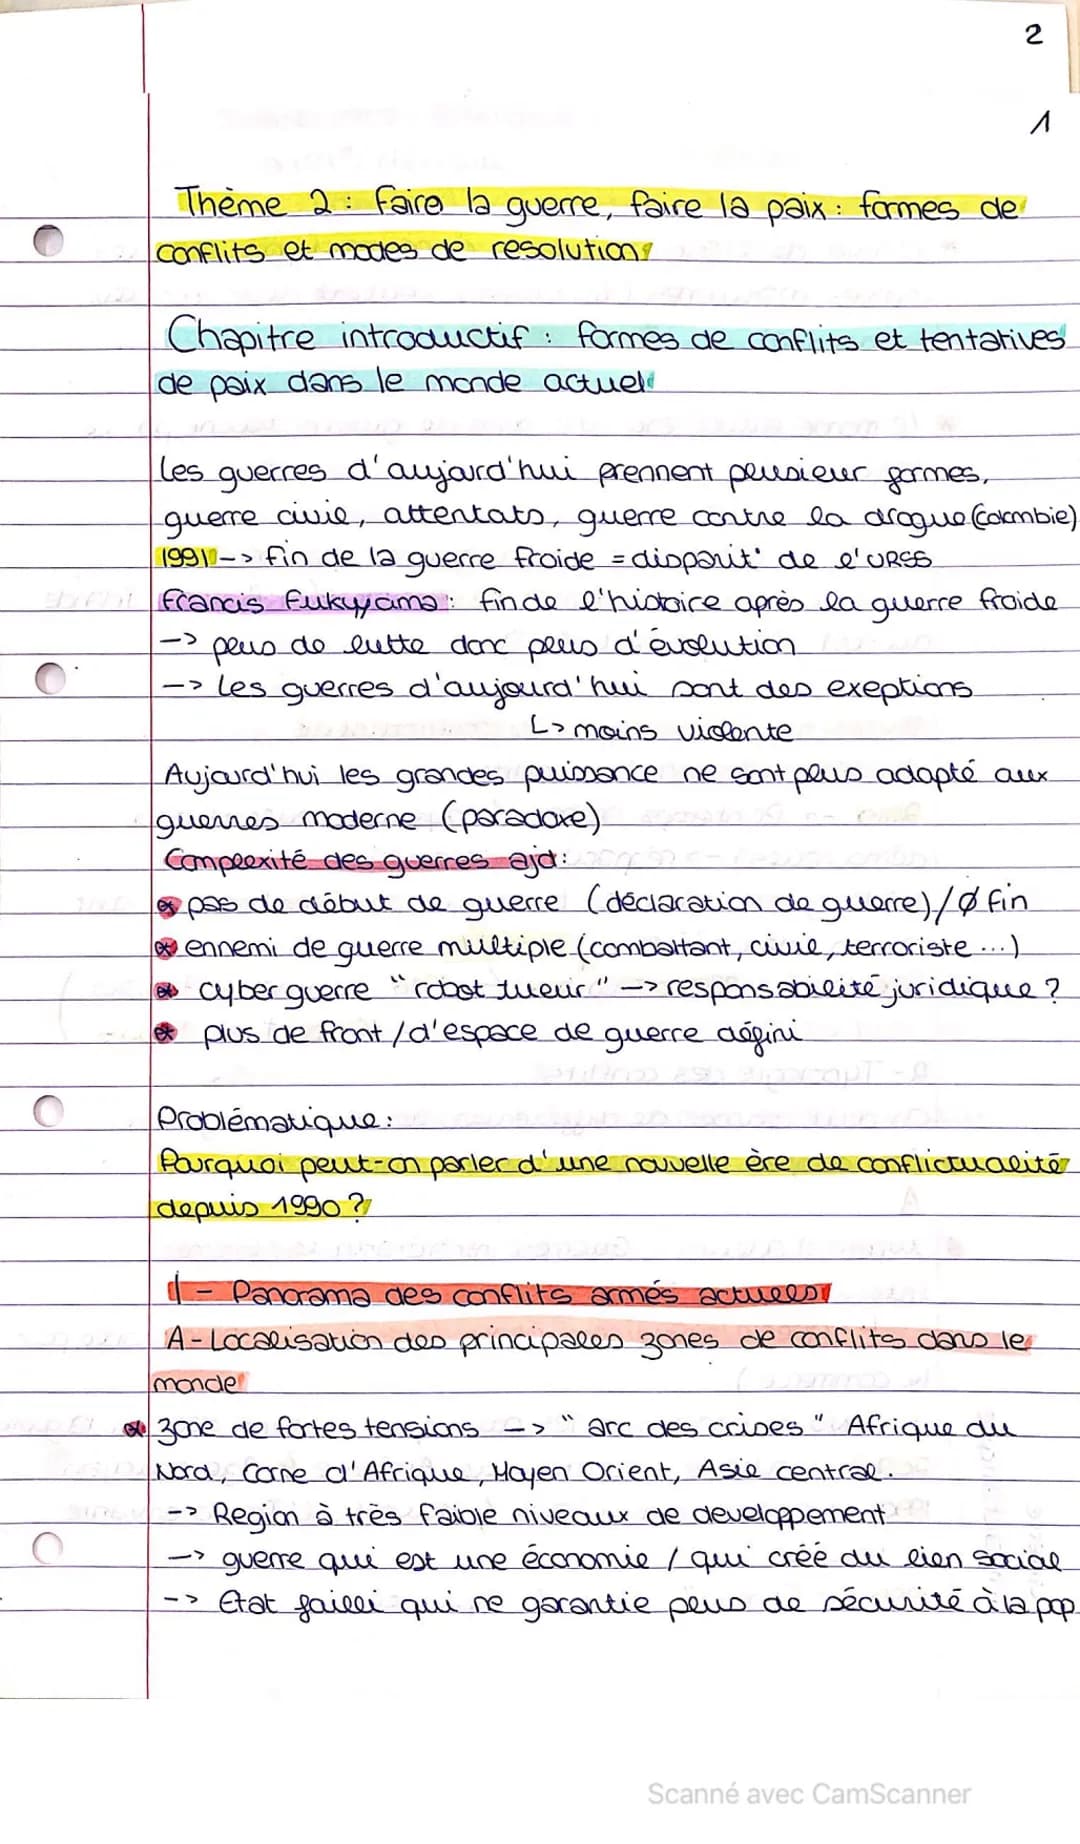 2
1
Thème 2 : Faire la guerre, faire la paix : formes de
conflits et modes de resolutions
Chapitre introductif : formes de conflits et tentatives
de paix dans le monde actuel
Les guerres d'aujard'hui prennent plusieur formes,
guerre civile, attentats, guerre contre la drogue (Colombie)
1991 -> fin de la guerre froide = disparit° de l'URSS
Francis Fukuyama : fin de l'histoire après la guerre froide
-> plus de lutte donc plus d'évolution
-> Les guerres d'aujourd'hui sont des exeptions
L> moins violente
Aujourd'hui les grandes puissance ne sont plus adapté aux
guerres moderne (paradoxe)
Complexité des guerres ajd :
* pas de début de guerre (déclaration de guerre) / Ø fin
* ennemi de guerre multiple (combattant, civile, terroriste ...)
* cyber guerre "robot tueur" -> responsabilité juridique ?
* plus de front / d'espace de guerre défini
Problématique :
Pourquoi peut-on parler d'une nouvelle ère de conflictualité
depuis 1990 ?
I - Panorama des conflits armés actuels
A - Localisation des principales zones de conflits dans le
monde
* zone de fortes tensions -> "arc des crises" Afrique du
Nord, Corne d'Afrique, Moyen Orient, Asie central.
-> Region à très faible niveaux de developpement
-> guerre qui est une économie / qui créé du lien social
-> Etat failli qui ne garantie plus de sécurité à la pop
Scanné avec CamScanner